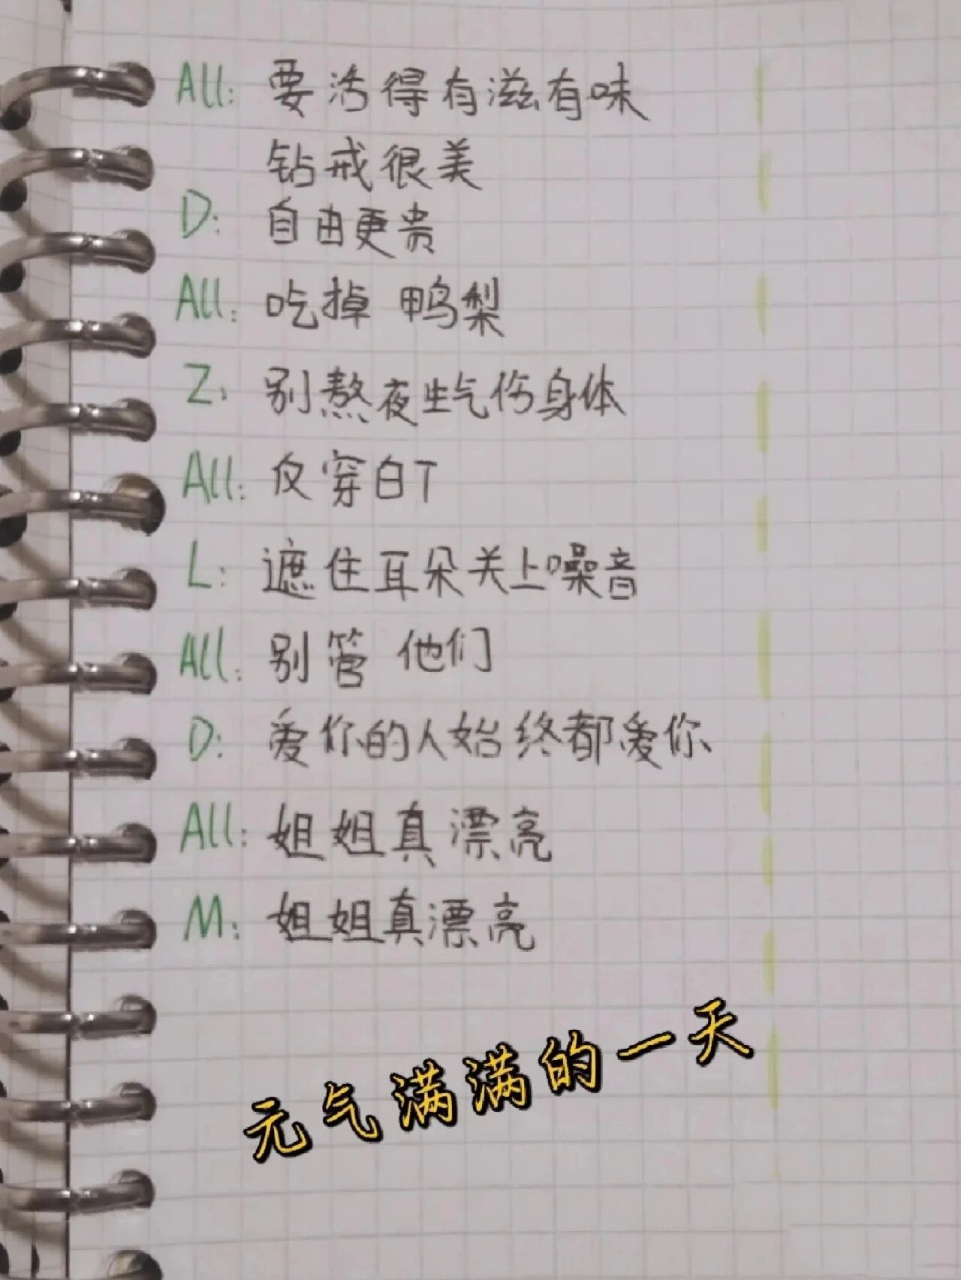 All: 要活得有滋有味
钻戒很美
D: 自由更贵
All: 吃掉 鸭梨
Z: 别熬夜生气伤身体
All: 仅穿白T
L: 遮住耳朵关上噪音
All: 别管 他们
D: 爱你的人始终都爱你
All: 姐姐真漂亮
M: 姐姐真漂亮
元气满满的一天